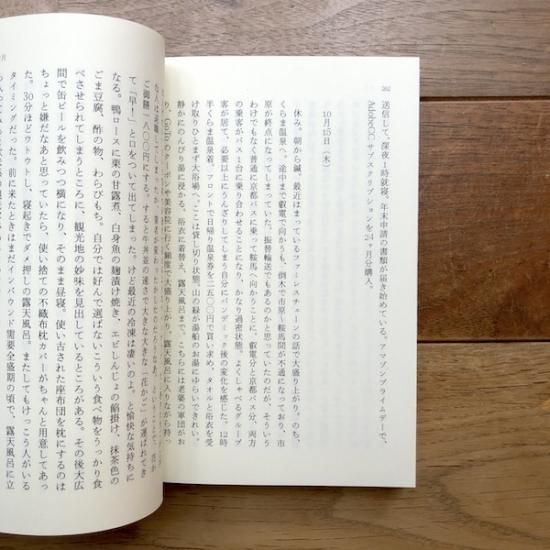 262
送信して、深夜1時就寝。年末申請の書類が届き始めている。アマゾンプライムデーで、
AdobeCCサブスクリプションを24ヶ月分購入。
10月15日(木)
休み。朝から鍼。最近はまっているファミレスチェーンの話で大盛り上がり。のち、
くらま温泉へ。途中まで叡電で向かうも、倒木で市原ー鞍馬間が不通になっており市
原が終点になってしまっていた。振替輸送でもあるのかと思っていたのだが、そういう
わけでもなく普通に京都バスに乗って鞍馬へ向かうことに。叡電分と京都バス分、両方
の乗客がバス1台に乗り合わせることになり、かなり過密状態。よくしゃべるグループ
客が居て、必要以上にうんざりしてしまう自分にパンデミック後の変化を感じた。12時
半くらま温泉着。フロントで日帰り温泉券を二五〇〇円で買い求め、タオルと浴衣を受
け取りひとまず大浴場へ。ここは貸し切り状態。山の緑が湯船のお湯にゆらいできれい。
静かにのんびり湯に浸かる。浴衣に着替え、露天風呂まで。こちらには老婆の軍団がお
り、
のクーポン使用美容院に行く頻度で大盛り上がり。露天風呂に入りながら持っ
ご御膳一八〇〇円にする。すると牛丼並の速さで大きな大きな「花かご」が運ばれてき
て「早!」と口をついて出てしまった。けど最近の冷凍は凄いのよ。と愉快な気持ちに
なる。鴨ロースに栗の甘露煮、白身魚の麹漬け焼き、エビしんじょの餡掛け、抹茶色の
ごま豆腐、酢の物、わらびもち。自分では好んで選ばないこういう食べ物をうっかり食
べさせられてしまうところに、観光地の妙味を見出しているところがある。その後大広
間で缶ビールを飲みつつ横になり、そのまま昼寝。使い古された座布団を枕にするのは
ちょっと嫌だなあと思っていたら、使い捨ての不織布枕カバーがちゃんと用意してあっ
た。30分ほどウトウトし、寝起きでダメ押しの露天風呂。またしてもけっこう人がいる
タイミングだった。前に来たときはまだインバウンド需要全盛期の頃で、露天風呂に立